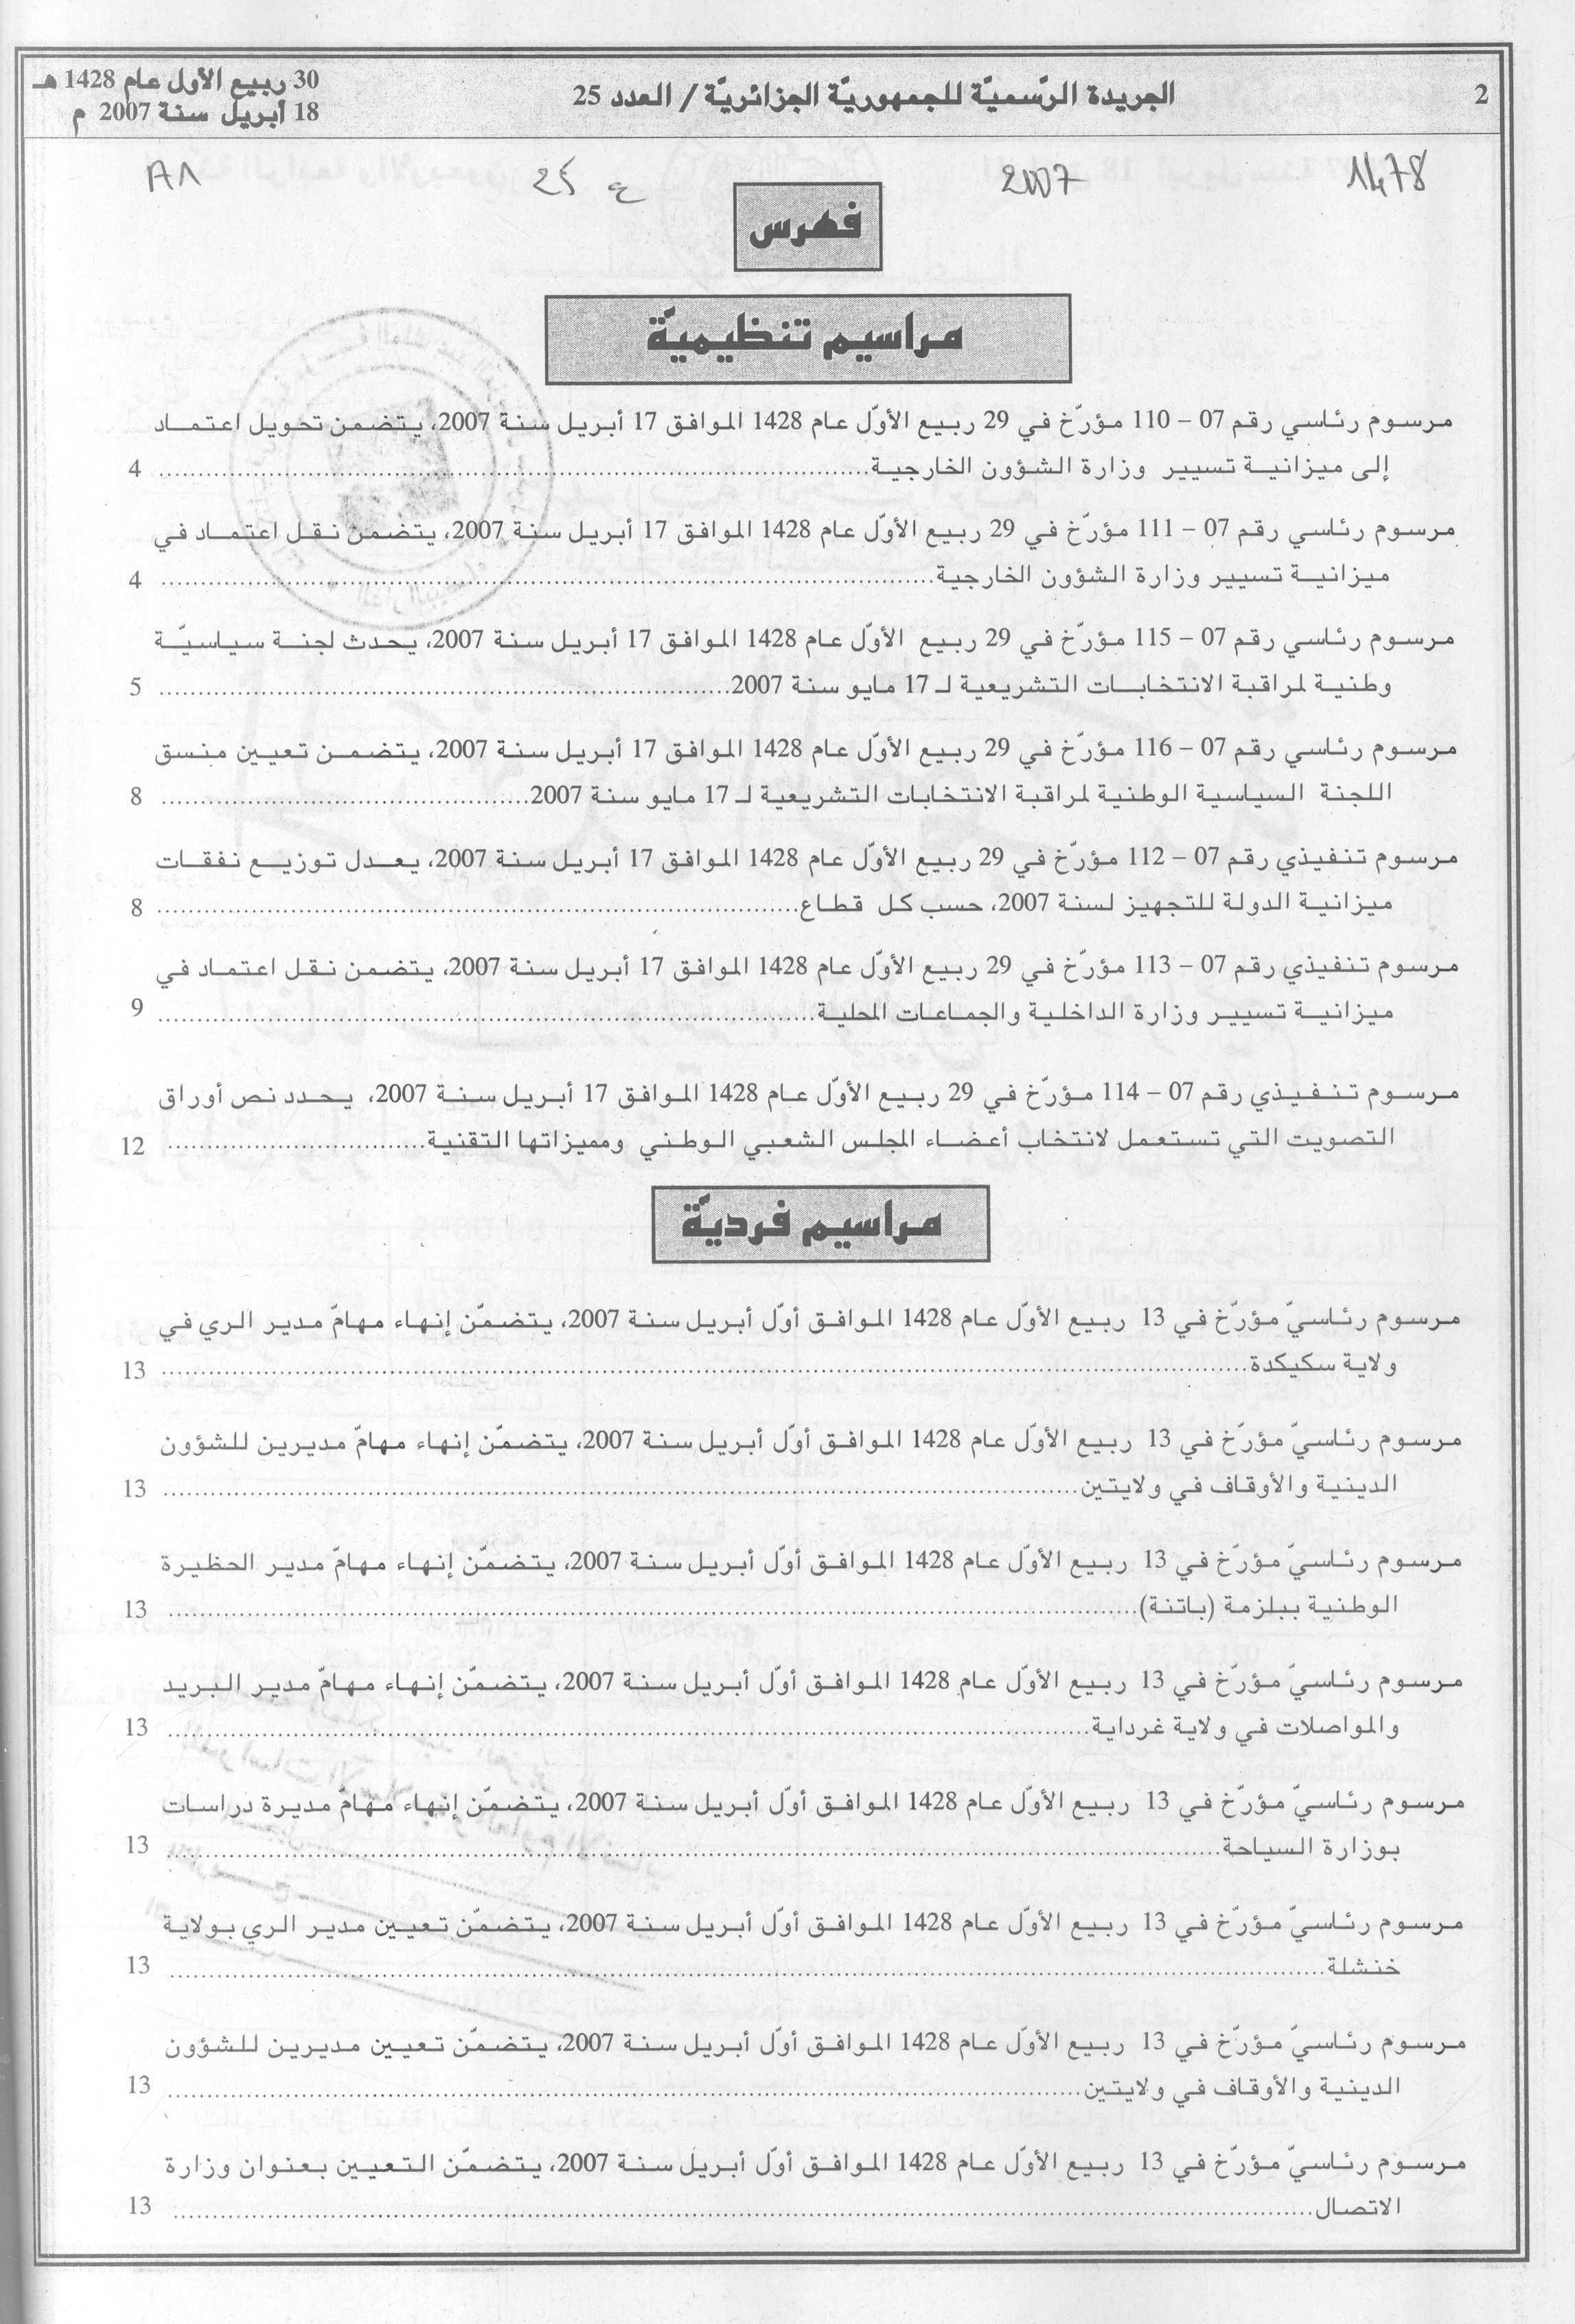 2
الجريدة الرّسميّة للجمهوريّة الجزائريّة / العدد 25
30 ربيع الأول عام 1428 هـ
18 أبريل سنة 2007 م
1478 2007 ع 25 A1
فهرس
مراسيم تنظيميّة
مرسوم رئاسي رقم 07 – 110 مؤرّخ في 29 ربيع الأوّل عام 1428 الموافق 17 أبريل سنة 2007، يتضمن تحويل اعتماد
إلى ميزانية تسيير وزارة الشؤون الخارجية.......... 4
مرسوم رئاسي رقم 07 – 111 مؤرّخ في 29 ربيع الأوّل عام 1428 الموافق 17 أبريل سنة 2007، يتضمن نقل اعتماد في
ميزانية تسيير وزارة الشؤون الخارجية.......... 4
مرسوم رئاسي رقم 07 – 115 مؤرّخ في 29 ربيع الأوّل عام 1428 الموافق 17 أبريل سنة 2007، يحدث لجنة سياسيّة
وطنية لمراقبة الانتخابات التشريعية لـ 17 مايو سنة 2007.......... 5
مرسوم رئاسي رقم 07 – 116 مؤرّخ في 29 ربيع الأوّل عام 1428 الموافق 17 أبريل سنة 2007، يتضمن تعيين منسق
اللجنة السياسية الوطنية لمراقبة الانتخابات التشريعية لـ 17 مايو سنة 2007.......... 8
مرسوم تنفيذي رقم 07 – 112 مؤرّخ في 29 ربيع الأوّل عام 1428 الموافق 17 أبريل سنة 2007، يعدل توزيع نفقات
ميزانية الدولة للتجهيز لسنة 2007، حسب كل قطاع.......... 8
مرسوم تنفيذي رقم 07 – 113 مؤرّخ في 29 ربيع الأوّل عام 1428 الموافق 17 أبريل سنة 2007، يتضمن نقل اعتماد في
ميزانية تسيير وزارة الداخلية والجماعات المحلية.......... 9
مرسوم تنفيذي رقم 07 – 114 مؤرّخ في 29 ربيع الأوّل عام 1428 الموافق 17 أبريل سنة 2007، يحدد نص أوراق
التصويت التي تستعمل لانتخاب أعضاء المجلس الشعبي الوطني ومميزاتها التقنية.......... 12
مراسيم فرديّة
مرسوم رئاسيّ مؤرّخ في 13 ربيع الأوّل عام 1428 الموافق أوّل أبريل سنة 2007، يتضمّن إنهاء مهامّ مدير الري في
ولاية سكيكدة.......... 13
مرسوم رئاسيّ مؤرّخ في 13 ربيع الأوّل عام 1428 الموافق أوّل أبريل سنة 2007، يتضمّن إنهاء مهامّ مديرين للشؤون
الدينية والأوقاف في ولايتين.......... 13
مرسوم رئاسيّ مؤرّخ في 13 ربيع الأوّل عام 1428 الموافق أوّل أبريل سنة 2007، يتضمّن إنهاء مهامّ مدير الحظيرة
الوطنية ببلزمة (باتنة).......... 13
مرسوم رئاسيّ مؤرّخ في 13 ربيع الأوّل عام 1428 الموافق أوّل أبريل سنة 2007، يتضمّن إنهاء مهامّ مدير البريد
والمواصلات في ولاية غرداية.......... 13
مرسوم رئاسيّ مؤرّخ في 13 ربيع الأوّل عام 1428 الموافق أوّل أبريل سنة 2007، يتضمّن إنهاء مهامّ مديرة دراسات
بوزارة السياحة.......... 13
مرسوم رئاسيّ مؤرّخ في 13 ربيع الأوّل عام 1428 الموافق أوّل أبريل سنة 2007، يتضمّن تعيين مدير الري بولاية
خنشلة.......... 13
مرسوم رئاسيّ مؤرّخ في 13 ربيع الأوّل عام 1428 الموافق أوّل أبريل سنة 2007، يتضمّن تعيين مديرين للشؤون
الدينية والأوقاف في ولايتين.......... 13
مرسوم رئاسيّ مؤرّخ في 13 ربيع الأوّل عام 1428 الموافق أوّل أبريل سنة 2007، يتضمّن التعيين بعنوان وزارة
الاتصال.......... 13